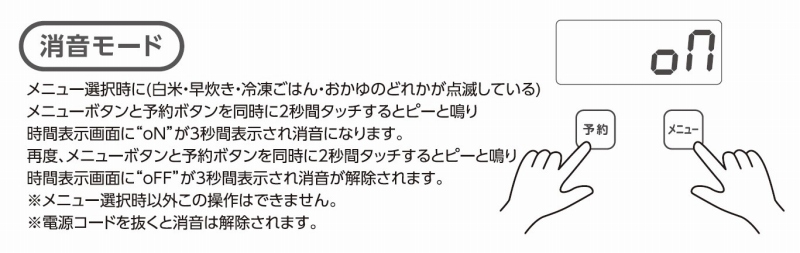 消音モード
メニュー選択時に(白米・早炊き・冷凍ごはん・おかゆのどれかが点滅している)
メニューボタンと予約ボタンを同時に2秒間タッチするとピーと鳴り
時間表示画面に“oN”が3秒間表示され消音になります。
再度、メニューボタンと予約ボタンを同時に2秒間タッチするとピーと鳴り
時間表示画面に“oFF”が3秒間表示され消音が解除されます。
※メニュー選択時以外この操作はできません。
※電源コードを抜くと消音は解除されます。
oN
予約
メニュー